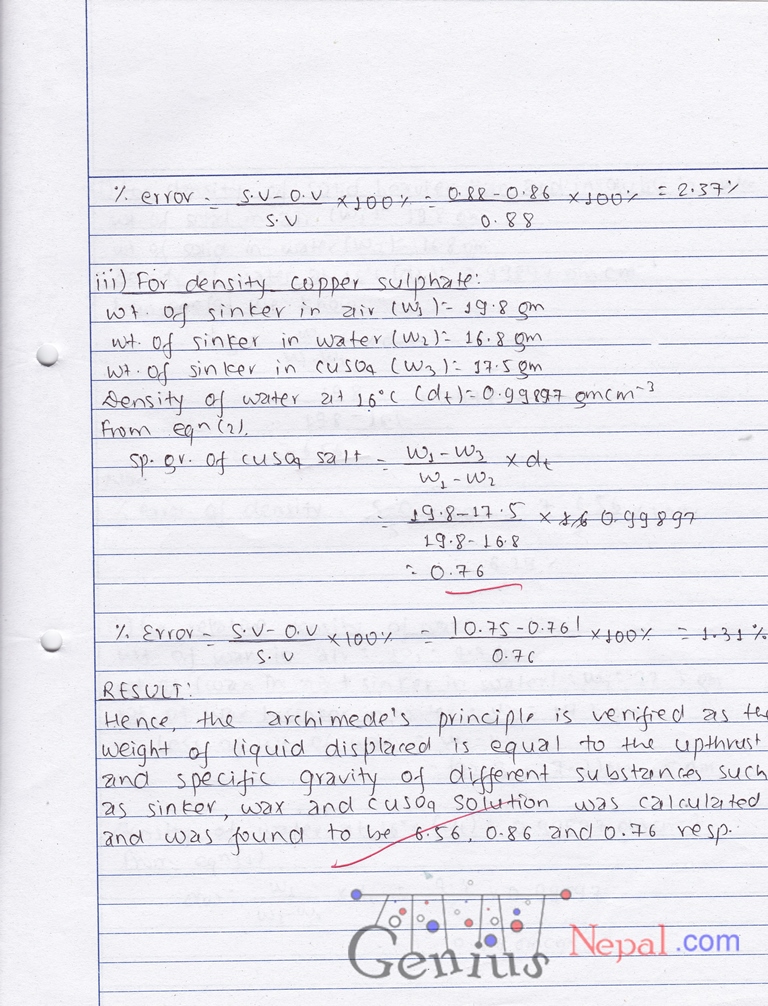 % error = S.V-O.V/S.V ×100% = 0.88-0.86/0.88 ×100% = 2.37%
iii) For density copper sulphate:
wt. of sinker in air (w1) = 19.8 gm
wt. of sinker in water (w2) = 16.8 gm
wt. of sinker in cuso4 (w3) = 17.5 gm
Density of water at 16°c (dt) = 0.99897 gmcm-3
From eqn (2),
sp. gr. of cuso4 salt = w1-w3/w1-w2 × dt
= 19.8-17.5/19.8-16.8 × 0.99897
= 0.76
% Error = S.V-O.V/S.V ×100% = |0.75-0.76|/0.76 ×100% = 1.31%
RESULT:
Hence, the archimede's principle is verified as the
weight of liquid displaced is equal to the upthrust
and specific gravity of different substances such
as sinker, wax and cuso4 solution was calculated
and was found to be 6.56, 0.86 and 0.76 resp.
Genius Nepal.com